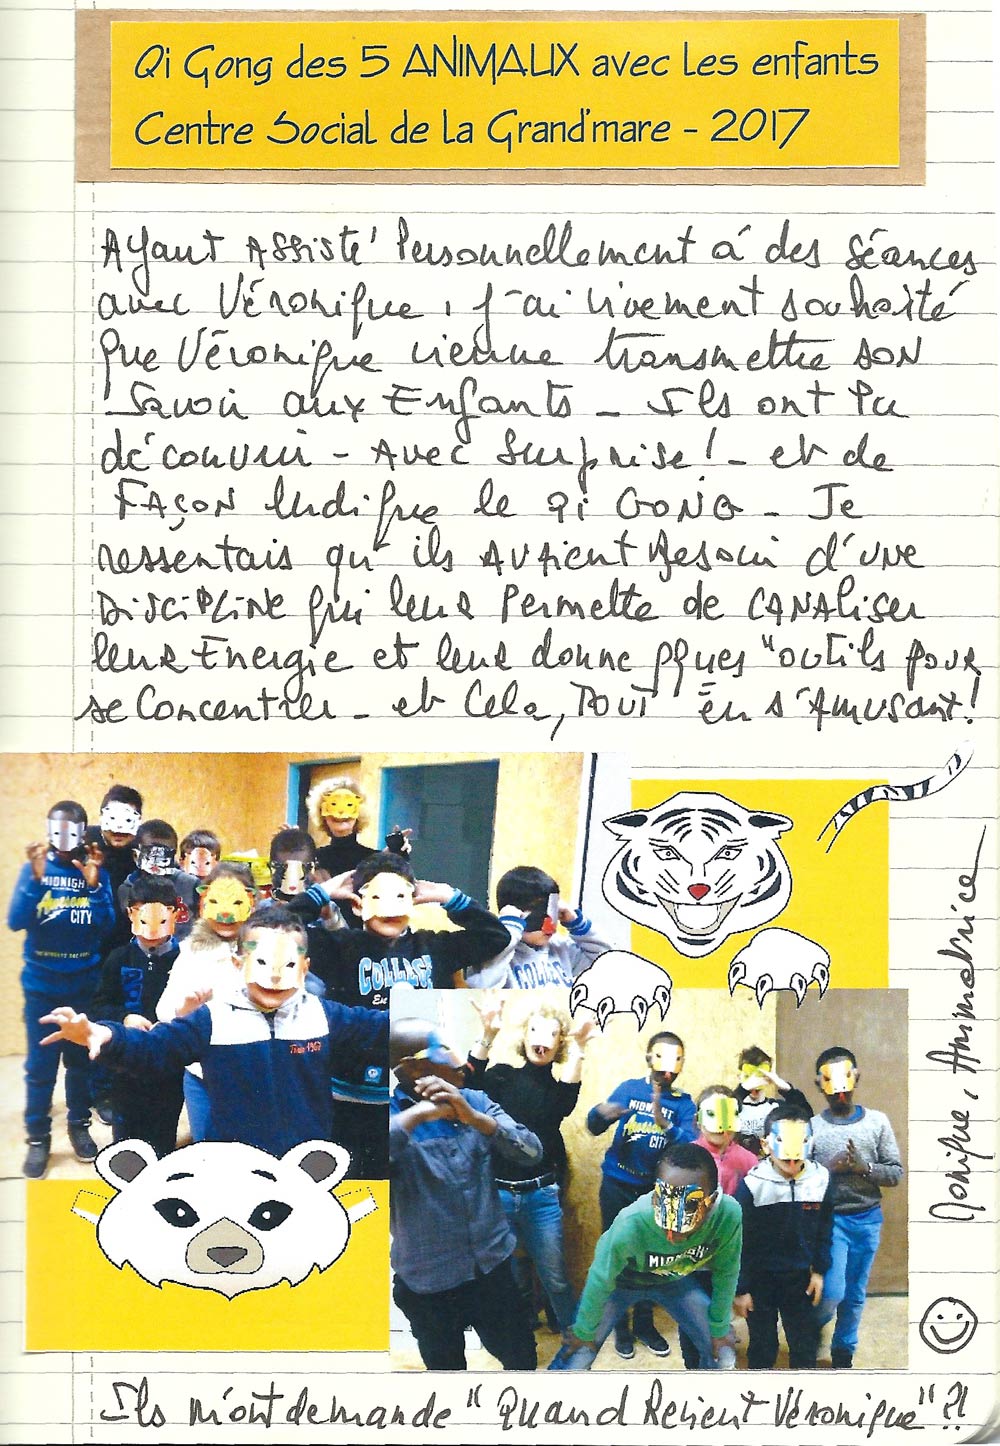 Qi Gong des 5 ANIMAUX avec les enfants
Centre Social de la Grand'mare - 2017
Ayant Assisté Personnellement à des Séances
avec Véronique, j'ai vivement souhaité
que Véronique vienne transmettre SON
Savoir aux Enfants - Ils ont Pu
découvrir - Avec Surprise! - et de
FAÇON ludique le Qi GONG - Je
ressentais qu'ils AVAient Besoin d'UNE
DisciPLiNe qui leuR Permette de CANAliser
leuR Energie et leur donne qques "outils pour
se Concentrer - et Cela, TOUT en s'Amusant!
MIDNIGH
Awesome
CITY
COLLEG
COLLEG
Train 1967
MIDNIGHT
Awesome
CITY
MIDNIGH
Monique, Animatrice
Ils m'ont demandé "Quand Revient Véronique" ?!